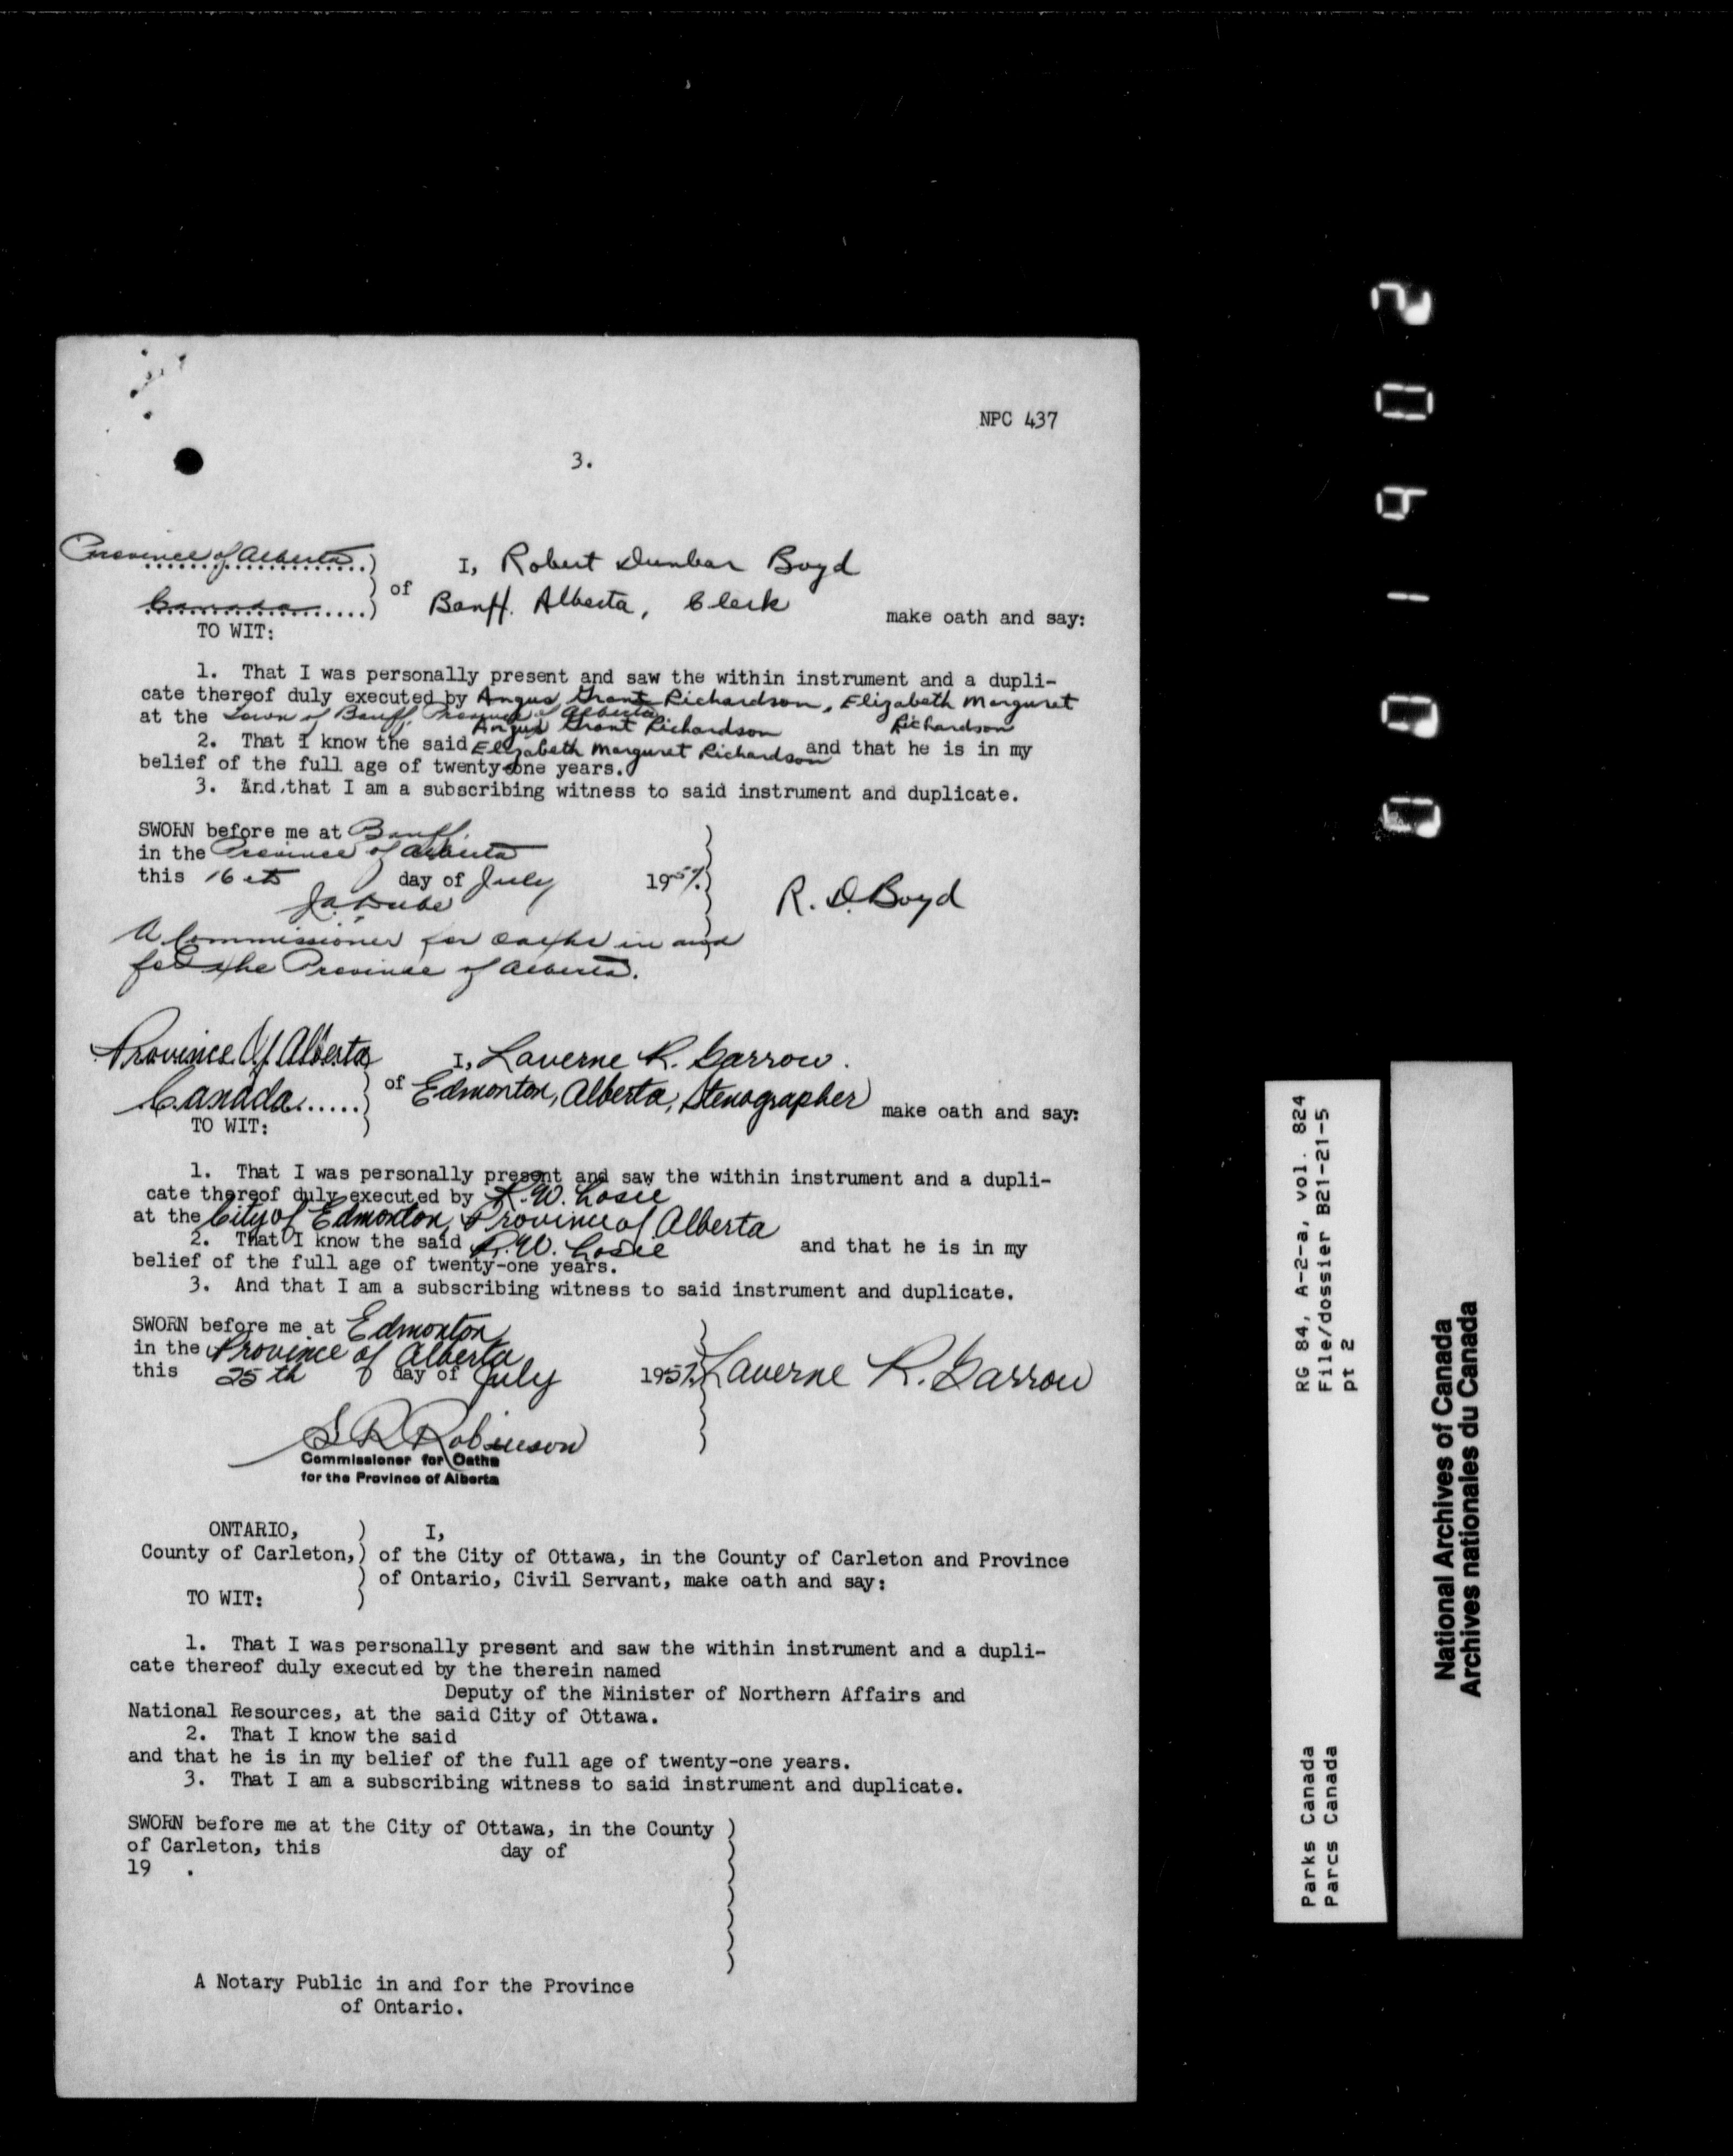 NPC 437
3.
Province of Alberta ) I, Robert Dunbar Boyd
Canada ) of Banff, Alberta, Clerk make oath and say:
TO WIT:
1. That I was personally present and saw the within instrument and a dupli-
cate thereof duly executed by Angus Grant Richardson, Elizabeth Marguret
Richardson
at the Town of Banff, Province of Alberta
Angus Grant Richardson
2. That I know the said Elizabeth Marguret Richardson and that he is in my
belief of the full age of twenty-one years.
3. And that I am a subscribing witness to said instrument and duplicate.
SWORN before me at Banff,
in the Province of Alberta
this 16th day of July 1957.
R. D. Boyd
A Commissioner for oaths in and
for the Province of Alberta.
Province Of Alberta I, Laverne R. Garrow.
Canada..... of Edmonton, Alberta, Stenographer make oath and say:
TO WIT:
1. That I was personally present and saw the within instrument and a dupli-
cate thereof duly executed by R.W. Losie
at the City of Edmonton, Province of Alberta
2. That I know the said R.W. Losie and that he is in my
belief of the full age of twenty-one years.
3. And that I am a subscribing witness to said instrument and duplicate.
SWORN before me at Edmonton,
in the Province of Alberta
this 25th day of July 1957. Laverne R. Garrow
S R Robinson
Commissioner for Oaths
for the Province of Alberta
ONTARIO, ) I,
County of Carleton,) of the City of Ottawa, in the County of Carleton and Province
) of Ontario, Civil Servant, make oath and say:
TO WIT: )
1. That I was personally present and saw the within instrument and a dupli-
cate thereof duly executed by the therein named
Deputy of the Minister of Northern Affairs and
National Resources, at the said City of Ottawa.
2. That I know the said
and that he is in my belief of the full age of twenty-one years.
3. That I am a subscribing witness to said instrument and duplicate.
SWORN before me at the City of Ottawa, in the County )
of Carleton, this day of
19 .
A Notary Public in and for the Province
of Ontario.
001902
RG 84, A-2-a, vol. 824
File/dossier B21-21-5
pt 2
Parks Canada
Parcs Canada
National Archives of Canada
Archives nationales du Canada